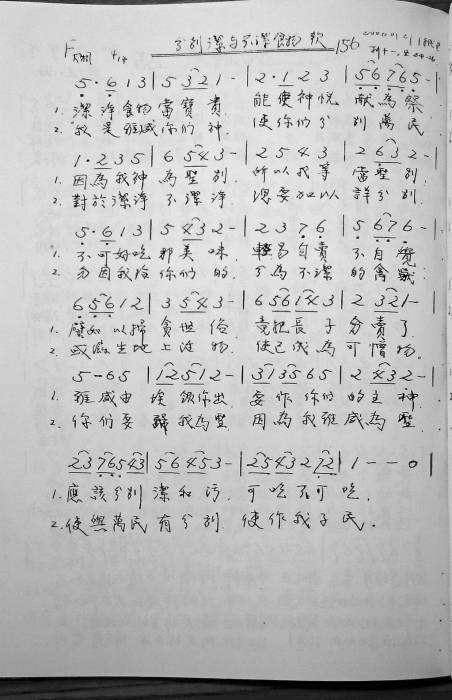 F 4/4 分別潔與不潔食物歌 156
5·6 1 3 | 5 3 2 1 - | 2·1 2 3 | 5 6 7 6 5 - |
1. 潔淨食物當寶貴 能使神悅 獻為祭
2. 我是雅威你們神 使你們分別萬民
1·2 3 5 | 6 5 4 3 - | 2 5 4 3 | 2 6 3 2 - |
1. 因為我神為聖別 所以我等當聖別
2. 對於潔淨不潔淨 總要加以詳分別
5·6 1 3 | 5 4 3 2 - | 2 3 7 6 | 5 6 7 6 - |
1. 不可好吃那美味 輕易自賣不自覺
2. 勿因我給你們的 了為不潔的禽獸
6 5 6 1 2 | 3 5 4 3 - | 6 5 6 1 4 3 | 2 3 2 1 - |
1. 譬如以掃貪世俗 竟把長子分賣了
2. 或滋生地上活物 使已成為可憎物
5 - 6 5 | 1 2 5 1 2 - | 3 1 3 5 6 5 | 2 4 3 2 - |
1. 雅威由埃領你出 要作你們的主神
2. 你們要歸我為聖 因為我雅威為聖
2 3 7 6 5 4 3 | 5 6 4 5 3 - | 2 5 4 3 2 7 2 | 1 - - 0 |
1. 應該分別潔和污 可吃不可吃
2. 使與萬民有分別 使作我子民.